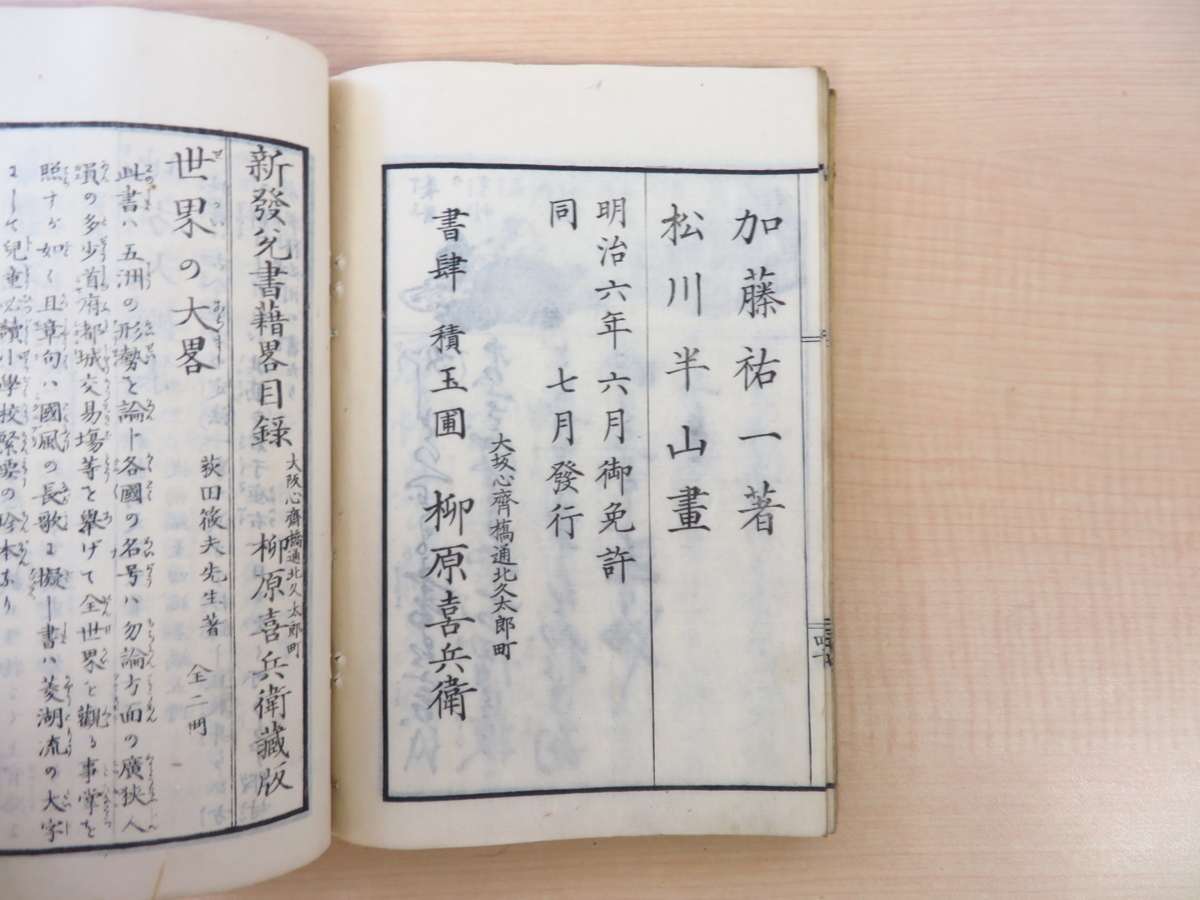 加藤祐一著
松川半山畫
明治六年六月御免許
同　七月發行
大坂心齊橋通北久太郎町
書肆　積玉圃　柳原喜兵衛
新發兌書藉畧目録　大阪心齋橋通北久太郎町　柳原喜兵衛藏版
世界の大畧　荻田筱夫先生著　全二冊
此書ハ五洲の形勢を論し各國の名号ハ勿論方面の廣狹人
員の多少首府都城交易塲等を舉げて全世界を觀る事掌を
照すが如く且章句ハ國風の長歌に擬し書ハ菱湖流の大字
にして兒童必讀小學校緊要の珍本なり